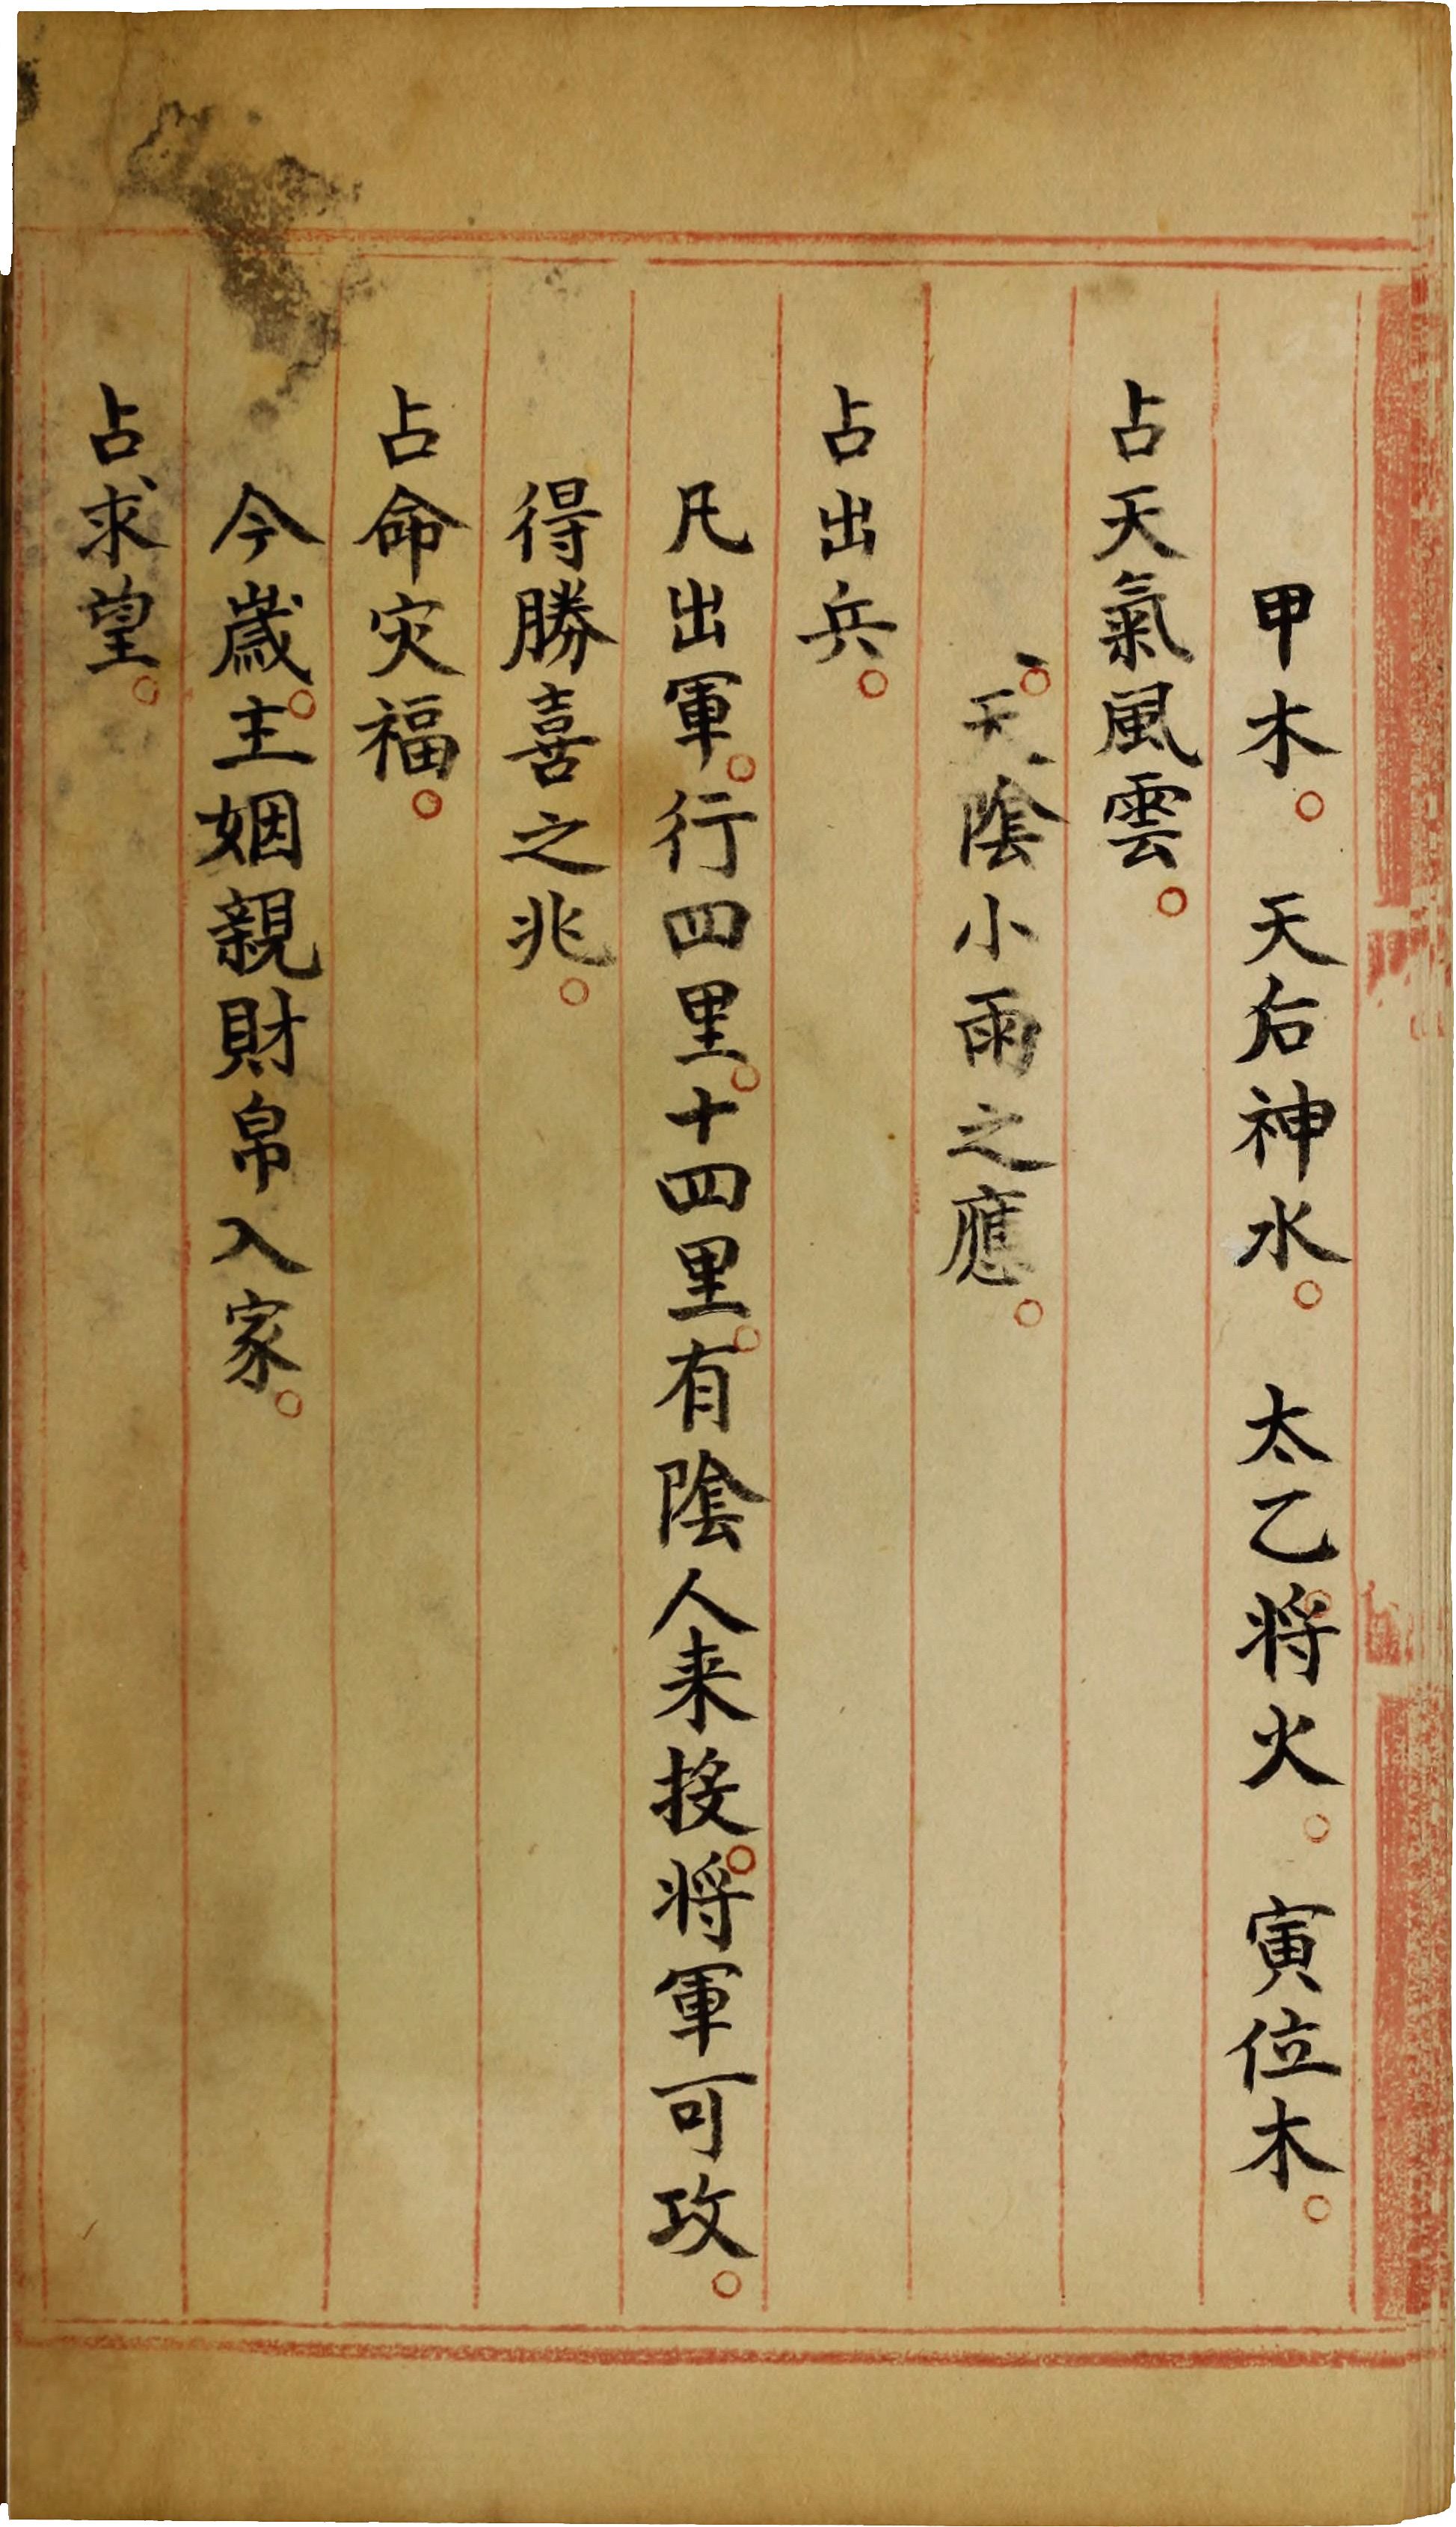 甲木。天后神水。太乙將火。寅位木。
占天氣風雲。
天陰小雨之應。
占出兵。
凡出軍。行四里。十四里。有陰人来接。將軍可攻。
得勝喜之兆。
占命灾福。
今歲。主姻親財帛入家。
占求望。